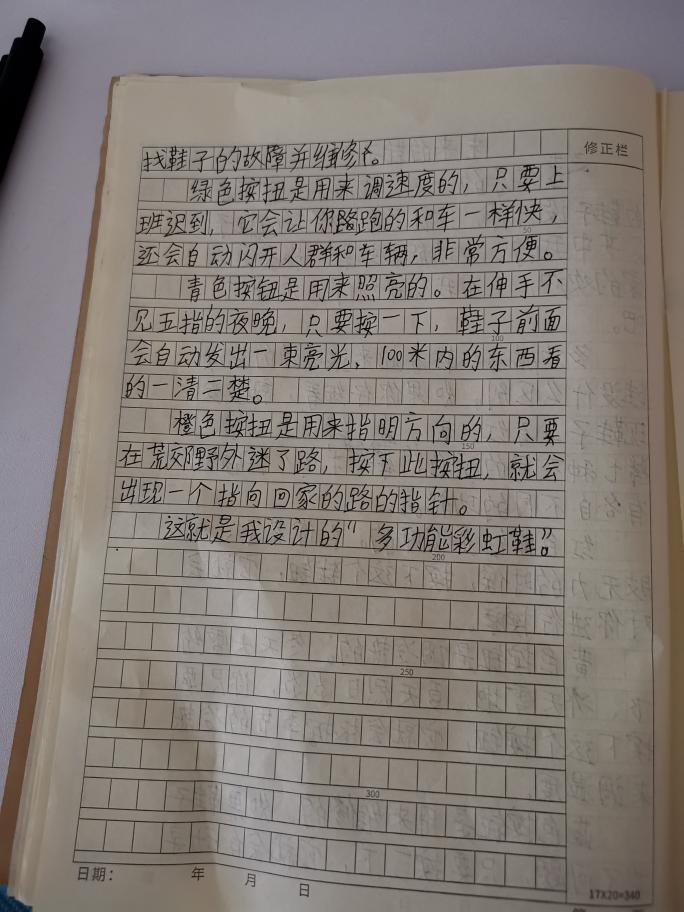 修正栏
找鞋子的故障并维修。
绿色按扭是用来调速度的，只要上
班迟到，它会让你路跑的和车一样快，
50
还会自动闪开人群和车辆，非常方便。
青色按钮是用来照亮的。在伸手不
见五指的夜晚，只要按一下，鞋子前面
100
会自动发出一束亮光，100米内的东西看
的一清二楚。
橙色按扭是用来指明方向的，只要
150
在荒郊野外迷了路，按下此按扭，就会
出现一个指向回家的路的指针。
这就是我设计的“多功能彩虹鞋”。
200
250
300
日期： 年 月 日
17X20=340